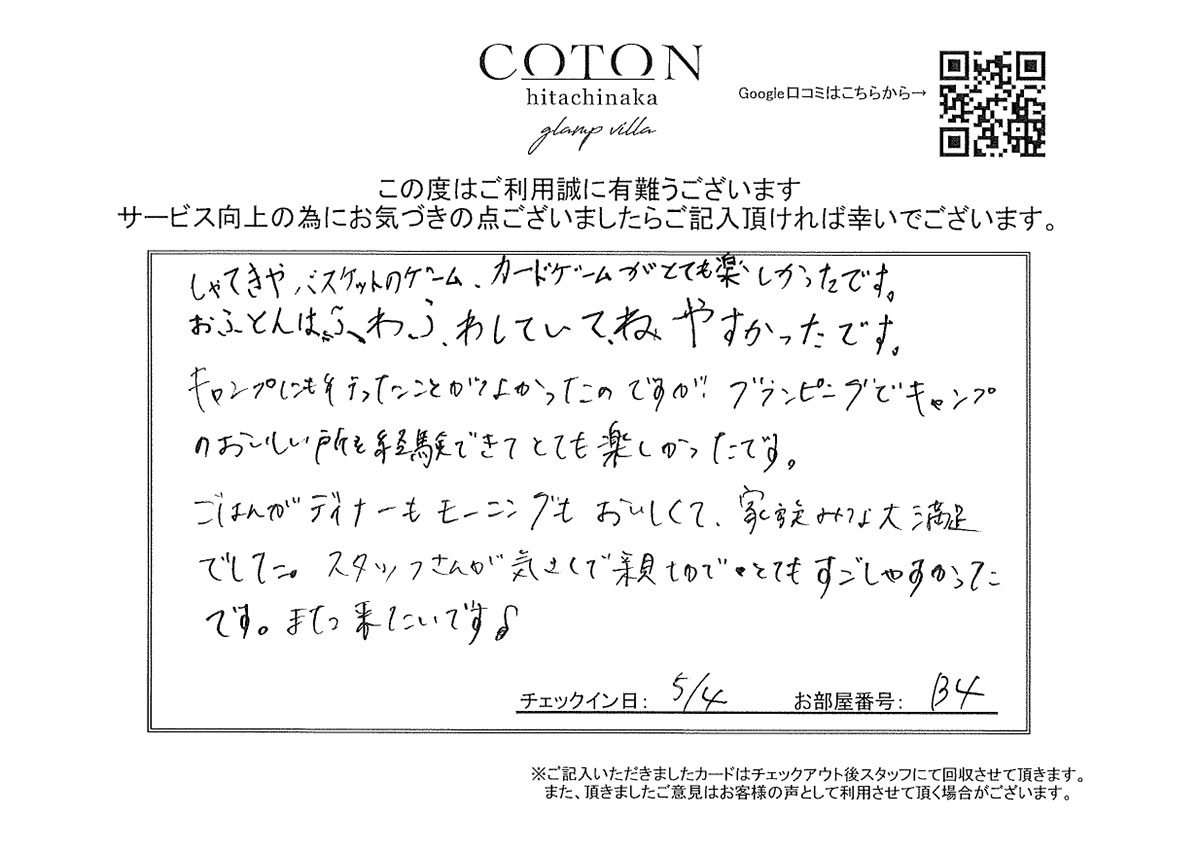 COTON
hitachinaka
glamp villa
Google口コミはこちらから→
この度はご利用誠に有難うございます
サービス向上の為にお気づきの点ございましたらご記入頂ければ幸いでございます。
しゃてきやバスケットのゲーム、カードゲームがとても楽しかったです。
おふとんはふわふわしていてねやすかったです。
キャンプにも行ったことがなかったのですが、グランピングでキャンプ
のおいしい所を経験できてとても楽しかったです。
ごはんがディナーもモーニングもおいしくて、家族みんな大満足
でした。スタッフさんが気さくで親切でとてもすごしやすかった
です。また来たいです♪
チェックイン日: 5/4 お部屋番号: B4
※ご記入いただきましたカードはチェックアウト後スタッフにて回収させて頂きます。
また、頂きましたご意見はお客様の声として利用させて頂く場合がございます。